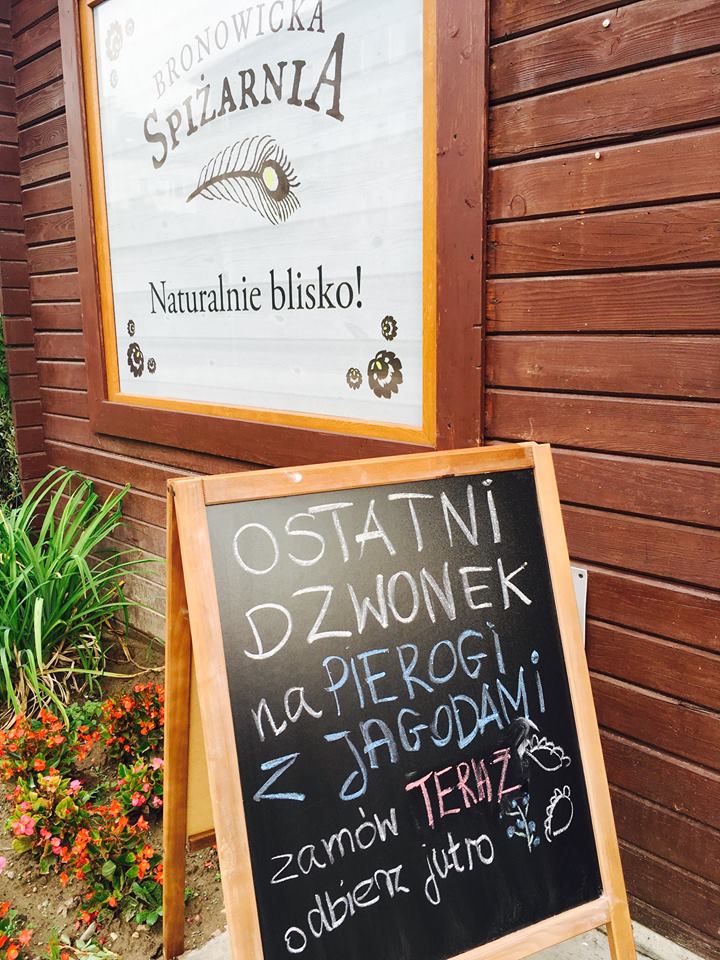 BRONOWICKA
SPIŻARNIA
Naturalnie blisko!
OSTATNi
DZWONEK
na PiEROGi
Z JAGODAMi
zamów TERAZ
odbierz jutro